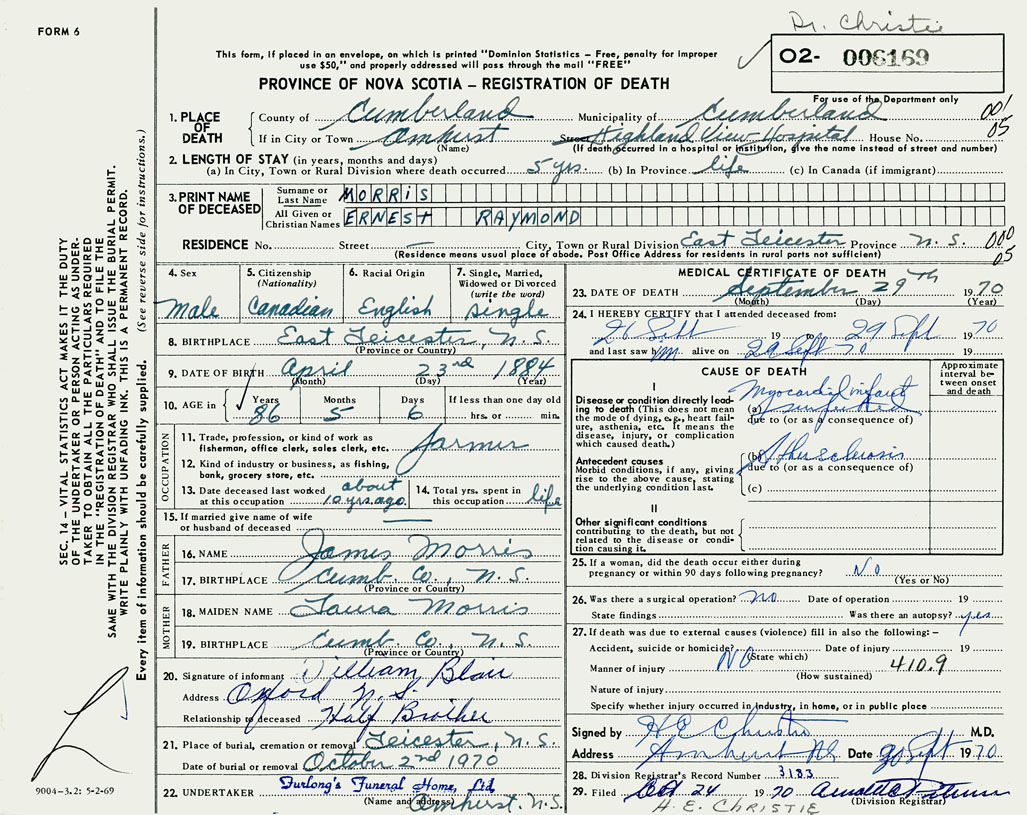 FORM 6
Dr. Christie
This form, if placed in an envelope, on which is printed "Dominion Statistics – Free, penalty for improper
use $50," and properly addressed will pass through the mail "FREE"
O2- 006169
PROVINCE OF NOVA SCOTIA – REGISTRATION OF DEATH
For use of the Department only
1. PLACE OF DEATH
County of Cumberland Municipality of Cumberland 001
If in City or Town Amhurst Street Highland View Hospital House No. 05
(Name) (If death occurred in a hospital or institution, give the name instead of street and number)
2. LENGTH OF STAY (in years, months and days)
(a) In City, Town or Rural Division where death occurred 5 yrs. (b) In Province life (c) In Canada (if immigrant)
3. PRINT NAME OF DECEASED
Surname or Last Name MORRIS
All Given or Christian Names ERNEST RAYMOND
RESIDENCE No. Street — City, Town or Rural Division East Leicester Province N.S. 000
(Residence means usual place of abode. Post Office Address for residents in rural parts not sufficient) 05
4. Sex
Male
5. Citizenship
(Nationality)
Canadian
6. Racial Origin
English
7. Single, Married,
Widowed or Divorced
(write the word)
Single
8. BIRTHPLACE East Leicester, N.S.
(Province or Country)
9. DATE OF BIRTH April 23rd 1884
(Month) (Day) (Year)
10. AGE in Years Months Days If less than one day old
86 5 6 hrs. or min.
OCCUPATION
11. Trade, profession, or kind of work as
fisherman, office clerk, sales clerk, etc. farmer
12. Kind of industry or business, as fishing,
bank, grocery store, etc.
13. Date deceased last worked
at this occupation about 10 yrs. ago.
14. Total yrs. spent in
this occupation life
15. If married give name of wife
or husband of deceased —
FATHER
16. NAME James Morris
17. BIRTHPLACE Cumb. Co., N.S.
(Province or Country)
MOTHER
18. MAIDEN NAME Laura Morris
19. BIRTHPLACE Cumb. Co., N.S.
(Province or Country)
20. Signature of informant William Blair
Address Oxford N.S.
Relationship to deceased Half Brother
21. Place of burial, cremation or removal Leicester, N.S.
Date of burial or removal October 2nd 1970
22. UNDERTAKER Furlong's Funeral Home, Ltd
(Name and address) Amhurst, N.S.
MEDICAL CERTIFICATE OF DEATH
23. DATE OF DEATH September 29TH 1970
(Month) (Day) (Year)
24. I HEREBY CERTIFY that I attended deceased from:
26 Sept 19 to 29 Sept 1970
and last saw him alive on 29 Sept 70 19
CAUSE OF DEATH
Approximate
interval be-
tween onset
and death
I
Disease or condition directly lead-
ing to death (This does not mean
the mode of dying, e.g., heart fail-
ure, asthenia, etc. It means the
disease, injury, or complication
which caused death.)
Myocardial infarct
(a)
due to (or as a consequence of)
Antecedent causes
Morbid conditions, if any, giving
rise to the above cause, stating
the underlying condition last.
(b)
due to (or as a consequence of)
(c)
II
Other significant conditions
contributing to the death, but not
related to the disease or condi-
tion causing it.
25. If a woman, did the death occur either during
pregnancy or within 90 days following pregnancy? No
(Yes or No)
26. Was there a surgical operation? no Date of operation 19
State findings Was there an autopsy? yes
27. If death was due to external causes (violence) fill in also the following: –
Accident, suicide or homicide? No Date of injury 19
(State which)
Manner of injury 410.9
(How sustained)
Nature of injury
Specify whether injury occurred in industry, in home, or in public place
Signed by H E Christie M.D.
Address Amhurst NS Date 30 Sept 1970
28. Division Registrar's Record Number 3183
29. Filed Oct 24 1970
(Division Registrar)
H. E. CHRISTIE
SEC. 14 – VITAL STATISTICS ACT MAKES IT THE DUTY
OF THE UNDERTAKER OR PERSON ACTING AS UNDER-
TAKER TO OBTAIN ALL THE PARTICULARS REQUIRED
IN THE "REGISTRATION OF DEATH" AND TO FILE THE
SAME WITH THE DIVISION REGISTRAR WHO SHALL ISSUE THE BURIAL PERMIT.
WRITE PLAINLY WITH UNFADING INK. THIS IS A PERMANENT RECORD.
Every item of information should be carefully supplied. (See reverse side for instructions.)
9004-3.2: 5-2-69